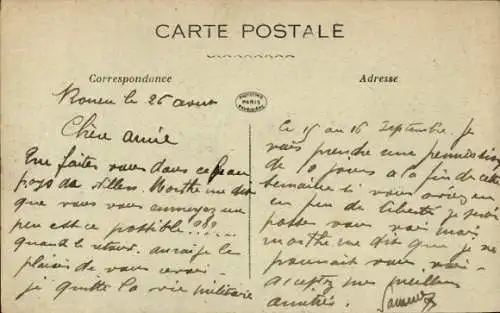 CARTE POSTALE
Correspondance
Adresse
PARIS
Rouen le 26 aout
Chère amie
Que faites vous dans ce beau
pays de Marthe me dit
que vous vous ennuyez un
peu est ce possible ???
quand le retour. aurai je le
plaisir de vous revoir
je quitte la vie militaire
le 15 au 16 Septembre. je
vais prendre une permission
de 10 jours à la fin de cette
semaine si vous aviez
un peu de liberté je serai
vous voir mais
marthe me dit que je ne
pourrait vous voir
acceptez mes meilleures
amitiés.